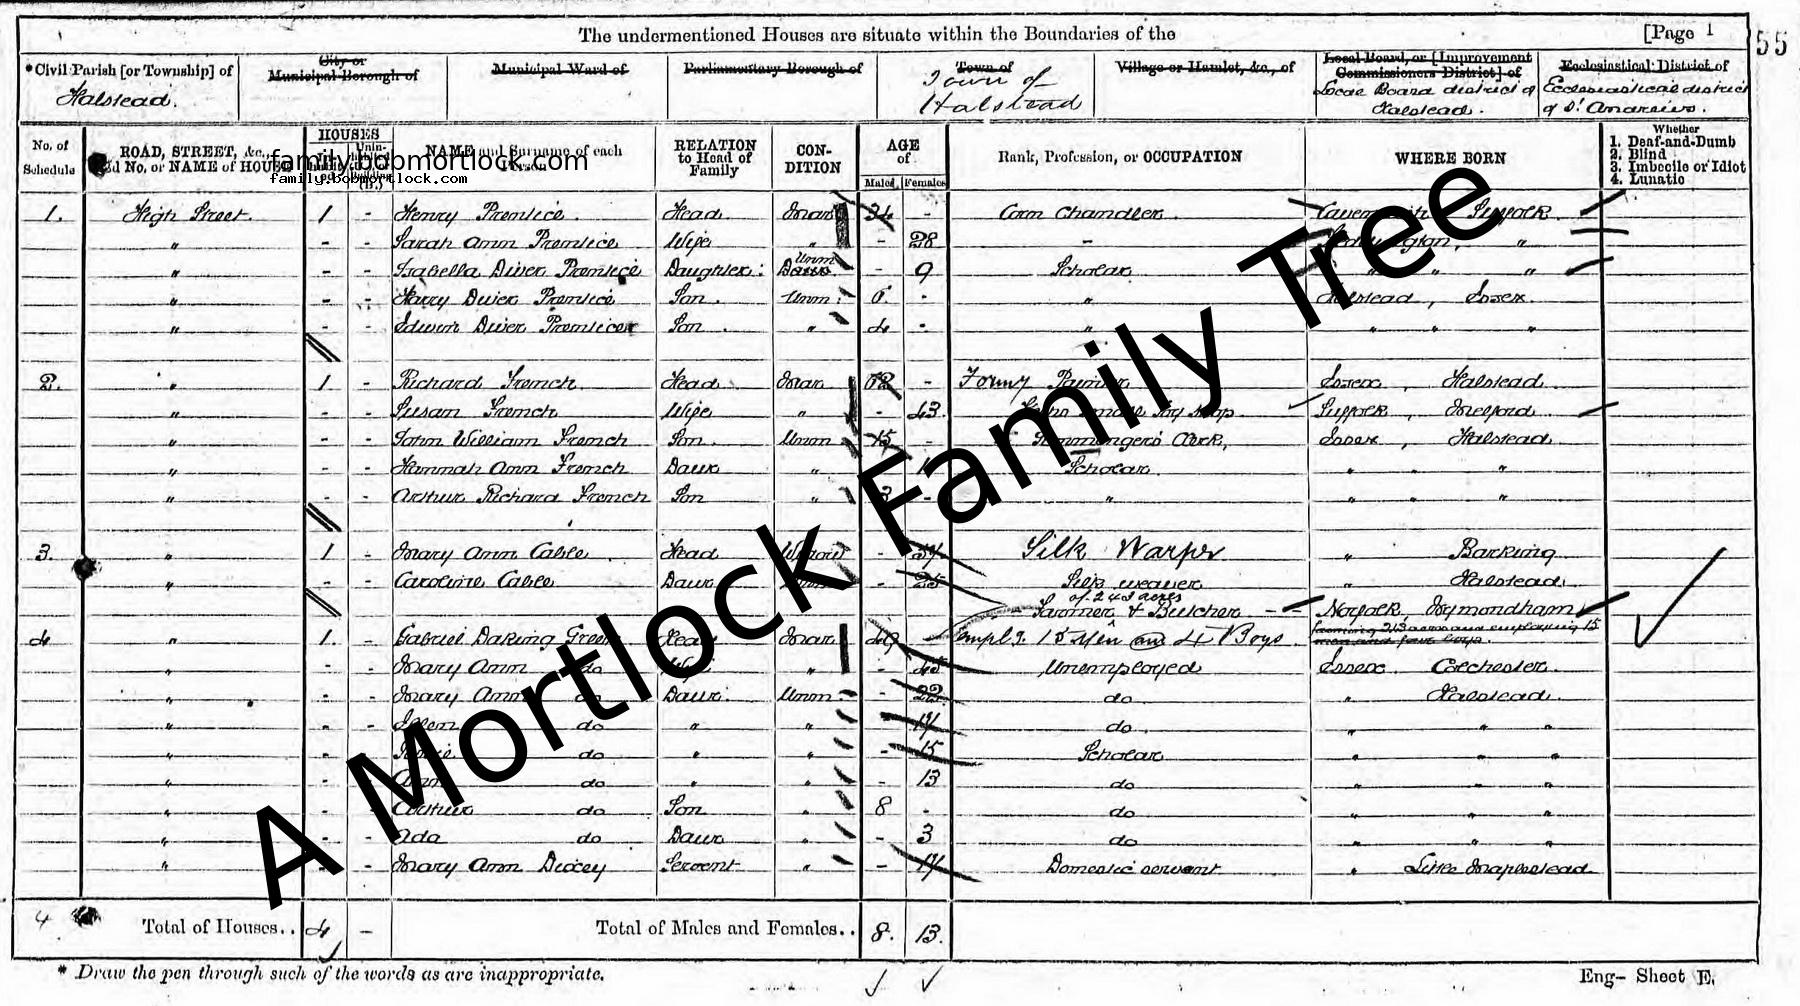 The undermentioned Houses are situate within the Boundaries of the [Page 1
55
*Civil Parish [or Township] of City or Municipal Borough of Municipal Ward of Parliamentary Borough of Town of Village or Hamlet, &c., of Local Board, or [Improvement Commissioners District] of Ecclesiastical District of
Halstead. Town of Halstead Local Board district of Halstead. Ecclesiastical district of St. Andrews.
No. of Schedule ROAD, STREET, &c., No. or NAME of HOUSE HOUSES NAME and Surname of each Person RELATION to Head of Family CONDITION AGE of Males Females Rank, Profession, or OCCUPATION WHERE BORN Whether 1. Deaf-and-Dumb 2. Blind 3. Imbecile or Idiot 4. Lunatic
family.bobmortlock.com
family.bobmortlock.com
1. High Street. 1 - Henry Prentice. Head Mar 34 - Corn Chandler. Cavendish Suffolk
" - - Sarah Ann Prentice Wife " - 28 - "
" - - Isabella Diver Prentice Daughter Unm - 9 Scholar " " "
" - - Harry Diver Prentice Son Unm 6 - " Halstead, Essex
" - - Edwin Diver Prentice Son " 4 - " " " "
2. " 1 - Richard French Head Mar - Essex, Halstead
" - - Susan French Wife " - 43 Suffolk, Melford
" - - John William French Son Unm 15 - Clerk, Essex, Halstead
" - - Hannah Ann French Daur " Scholar " " "
" - - Arthur Richard French Son " - " " " "
3. " 1 - Mary Ann Cable Head Widow - Silk Warper " Barking
" - - Caroline Cable Daur - 25 Silk weaver " Halstead
of 243 acres
Farmer & Butcher - Norfolk, Wymondham
4 " 1. Gabriel Daking Green Head Mar 49 - empl.g. 15 Men and 4 Boys farming 213 acres and employing 15 men and four boys.
" - - Mary Ann do " - 45 Unemployed Essex Colchester
" - - Mary Ann do Daur. Unm - 22 do " Halstead
" - - Ellen do " " do " " "
" - do " " - 15 Scholar " " "
" - do " " - 13 do " " "
" - - Arthur do Son " 8 - do " " "
" - Ada do Daur " - 3 do " " "
" - - Mary Ann Dixey Servant " - Domestic servant " Little Maplestead
4 Total of Houses.. 4 - Total of Males and Females.. 8. 13.
* Draw the pen through such of the words as are inappropriate. Eng- Sheet E.
A Mortlock Family Tree